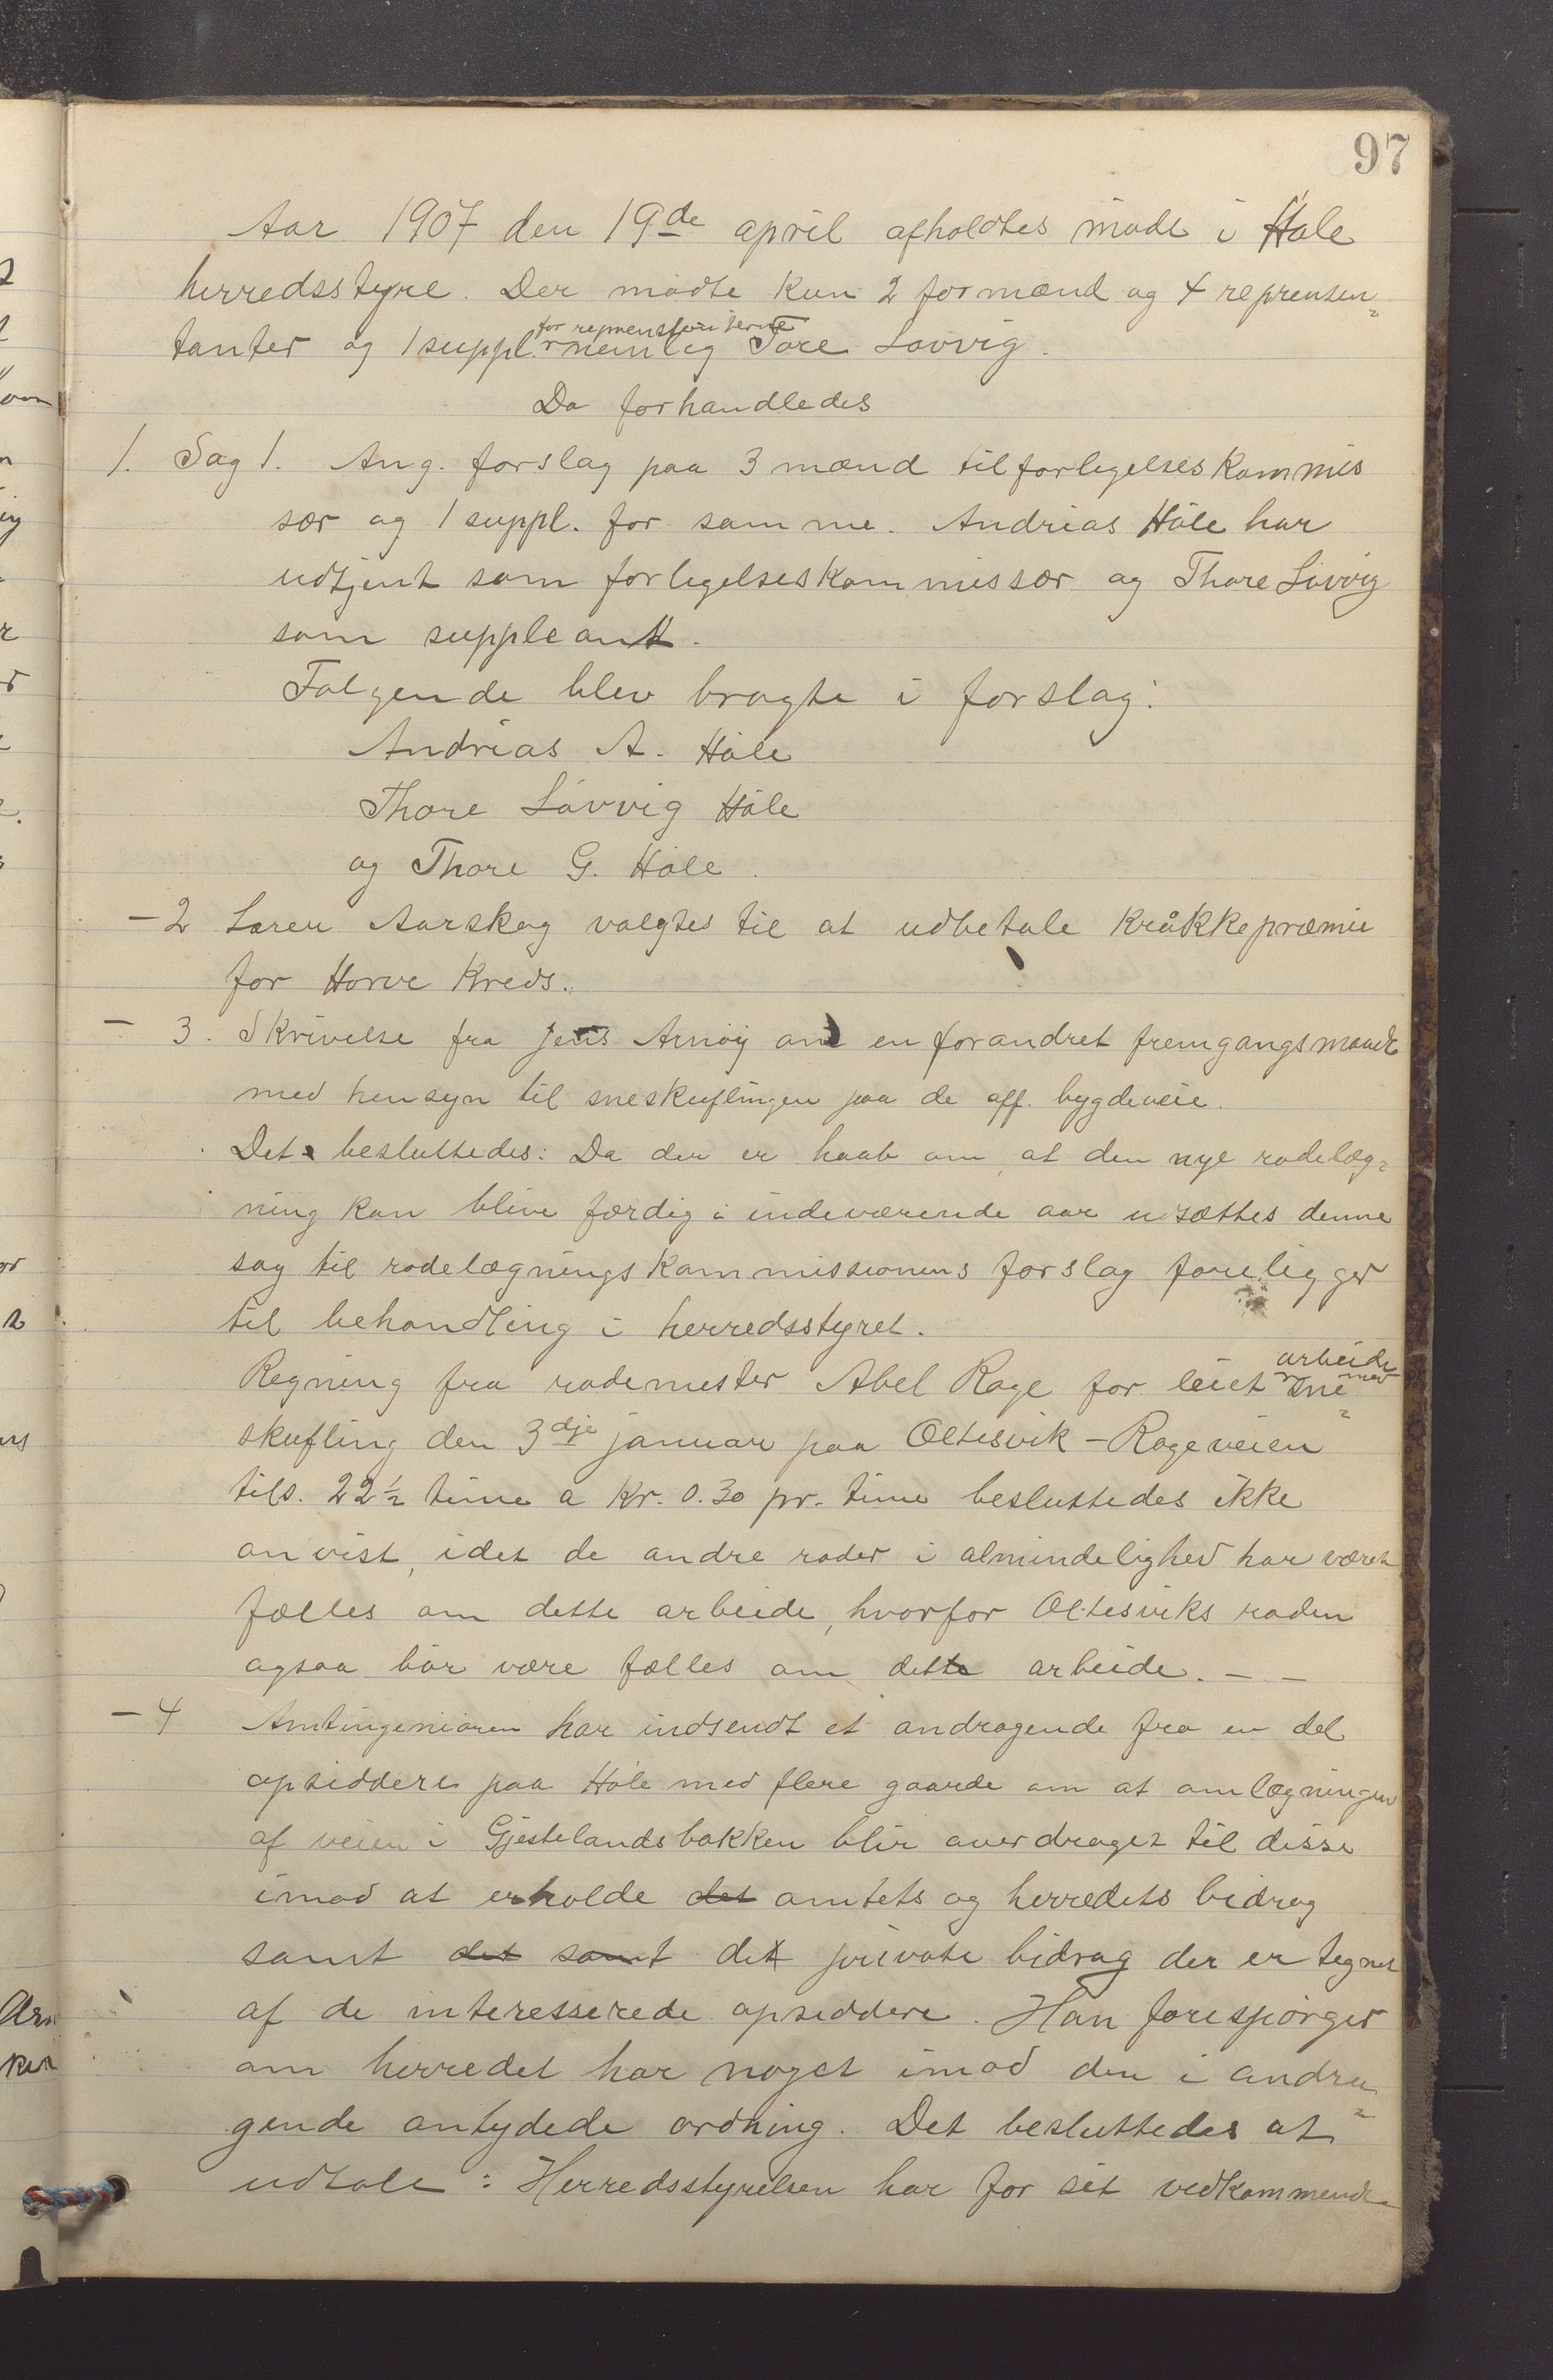 97
Aar 1907 den 19de april afholdtes møde i Høle
herredsstyre. Der mødte kun 2 formænd og 4 reprensen=
tanter og 1 suppl. for reprensterierne nemlig Tore Løvvig.
Da forhandledes
1. Sag 1. Ang. forslag paa 3 mænd til forligelseskommis
sær og 1 suppl. for samme. Andrias Høle har
udtjent som forligelseskommissær og Thore Løvvig
som suppleant.
Følgende blev bragte i forslag:
Andrias A. Høle
Thore Løvvig Høle
og Thore G. Høle.
- 2 Lærer Aarskog valgtes til at udbetale kråkkepræmie
for Horve kreds.
- 3. Skrivelse fra Jens Arnøy om en forandret fremgangsmaade
med hensyn til sneskuflingen paa de off. bygdeveie.
Det besluttedes: Da der er haab om, at den nye rodelæg=
ning kan blive færdig i indeværende aar udsættes denne
sag til rodelægningskommissionens forslag foreligger
til behandling i herredsstyret.
Regning fra rodemester Abel Rage for leiet arbeide med sne=
skufling den 3dje januar paa Oltesvik-Rageveien
tils. 22½ time a Kr. 0.30 pr. time besluttedes ikke
anvist, idet de andre roder i almindelighed har været
fælles om dette arbeide, hvorfor Oltesviks roden
ogsaa bør være fælles om dette arbeide. - -
- 4 Amtingeniøren har indsendt et andragende fra en del
opsiddere paa Høle med flere gaarde om at omlægningen
af veien i Gjestelandsbakken blir overdraget til disse
imod at erholde det amtets og herredets bidrag
samt det samt det private bidrag der er tegnet
af de interesserede opsiddere. Han forespørger
om herredet har noget imod den i andra=
gende antydede ordning. Det besluttedes at
udtale: Herredsstyrelsen har for sit vedkommende